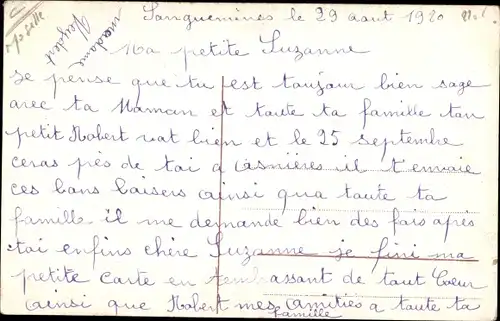 Moselle
madame
Sarguemines le 29 aout 1920
Ma petite Suzanne
je pense que tu est toujour bien sage
avec ta Maman et toute ta famille ton
petit Robert vat bien et le 25 septembre
ceras près de toi a asnières il t'envoie
ces bons baisers ainsi qua toute ta
famille il me demande bien des fois après
toi enfins chère Suzanne je fini ma
petite carte en t'embrassant de tout Coeur
ainsi que Robert mes amitiés a toute ta
famille